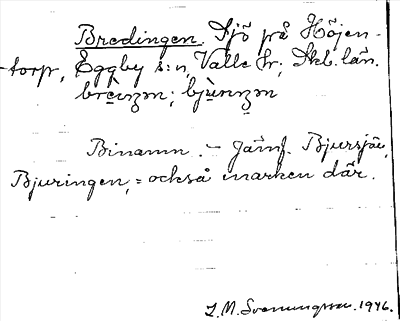 Bredingen. Sjö på Höjen-
torp, Eggby s:n, Valle hr; Skb. län.
bjùnʒm
Binamn. - Jämf. Bjursjäa,
Bjuringen, = också marken där.
L.M. Svenungsson. 1946.